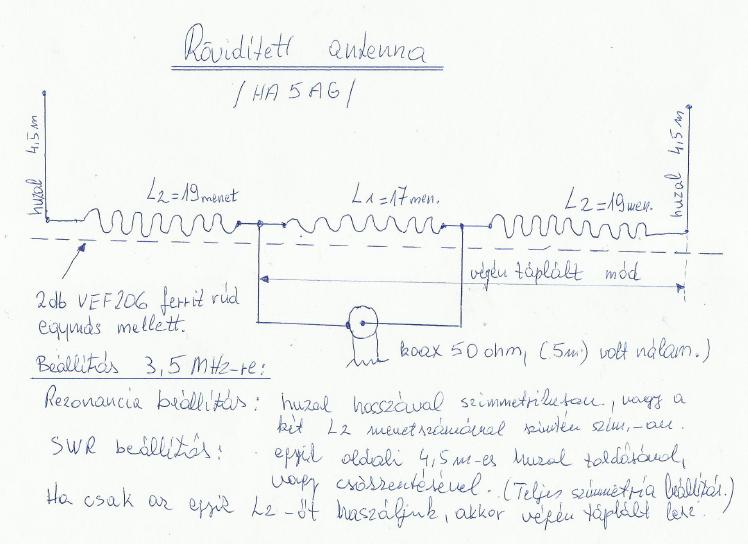 Rövidített antenna
/ HA5AG /
huzal 4,5m
L2=19menet
L1=17men.
L2=19men.
huzal 4,5m
végén táplált mód
2db VEF206 ferrit rúd
egymás mellett.
koax 50 ohm, (5m) volt nálam.)
Beállítás 3,5 MHz-re:
Rezonancia beállítás: huzal hosszával szimmetrikusan, vagy a
két L2 menetszámával szintén szim.-an.
SWR beállítás: egyik oldali 4,5m-es huzal toldásánál,
vagy csökkentésével. (Teljes szimmetria beállítás.)
Ha csak az egyik L2-őt használjuk, akkor végén táplált lesz.